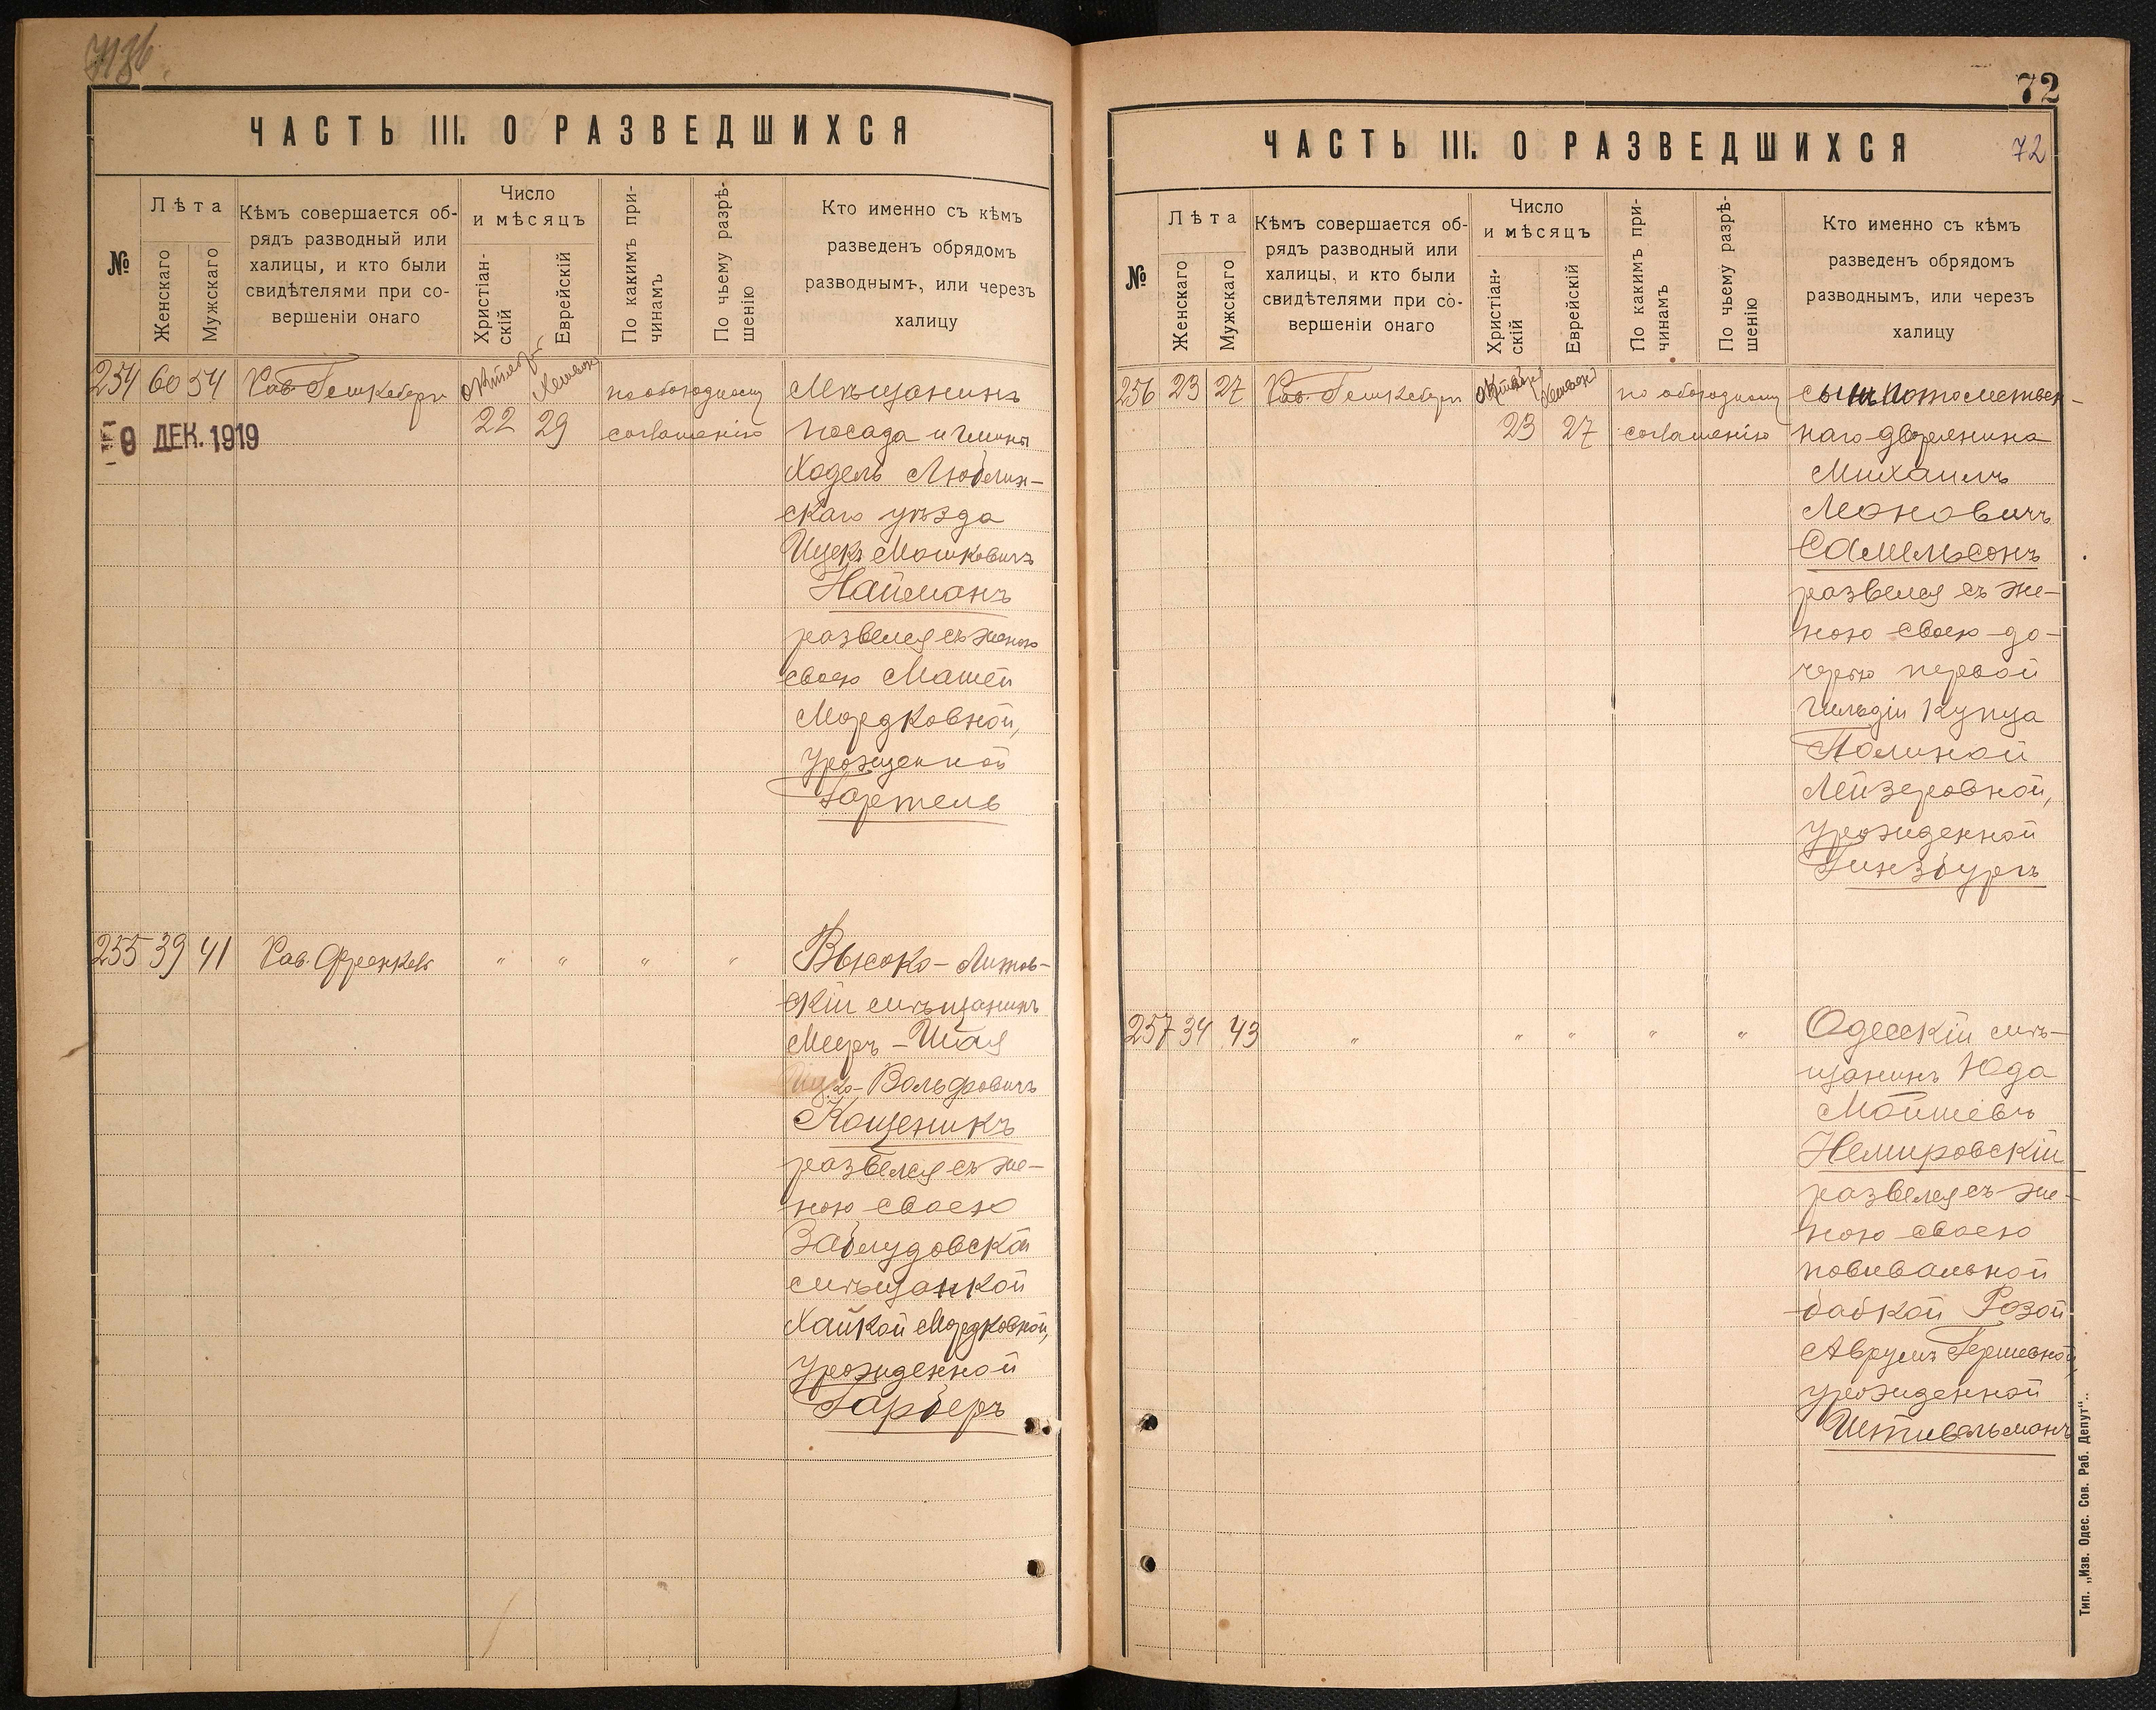 ЧАСТЬ III. О РАЗВЕДШИХСЯ
№
Лѣта
Женскаго
Мужскаго
Кѣмъ совершается об-
рядъ разводный или
халицы, и кто были
свидѣтелями при со-
вершеніи онаго
Число
и мѣсяцъ
Христіан-
скій
Еврейскій
По какимъ при-
чинамъ
По чьему разрѣ-
шенію
Кто именно съ кѣмъ
разведенъ обрядомъ
разводнымъ, или черезъ
халицу
254 60 54 Рав.
22 29
по обоюдному
соглашенію
9 ДЕК. 1919
Мѣщанинъ
посада и гмины
Ходель Люблин-
скаго уѣзда
Ицекъ Мошковичъ
Найманъ
развелся съ женою
своею Машей
Мордковной,
урожденной
Гартель
255 39 41 Рав. Френкель " " " "
Высоко-Литов-
скій мѣщанинъ
Мееръ-Шая
Ицко-Вольфовичъ
Кощеникъ
развелся съ же-
ною своею
Заблудовской
мѣщанкой
Хайкой Мордковной,
урожденной
Гарберъ
72
ЧАСТЬ III. О РАЗВЕДШИХСЯ
72
№
Лѣта
Женскаго
Мужскаго
Кѣмъ совершается об-
рядъ разводный или
халицы, и кто были
свидѣтелями при со-
вершеніи онаго
Число
и мѣсяцъ
Христіан-
скій
Еврейскій
По какимъ при-
чинамъ
По чьему разрѣ-
шенію
Кто именно съ кѣмъ
разведенъ обрядомъ
разводнымъ, или черезъ
халицу
256 23 27 Рав.
23 27
по обоюдному
соглашенію
сынъ потомствен-
наго дворянина
Михаилъ
Леоновичъ
Самельсонъ
развелся съ же-
ною своею до-
черью первой
гильдіи купца
Полиной
Лейзеровной,
урожденной
Гинзбургъ
257 34 43 " " " " "
Одесскій мѣ-
щанинъ Юда
Мойшевъ
Немировскій
развелся съ же-
ною своею
повивальной
бабкой Розой
Аврумъ Гершевной
урожденной
Штивельманъ
Тип. „Изв. Одес. Сов. Раб. Депут“.